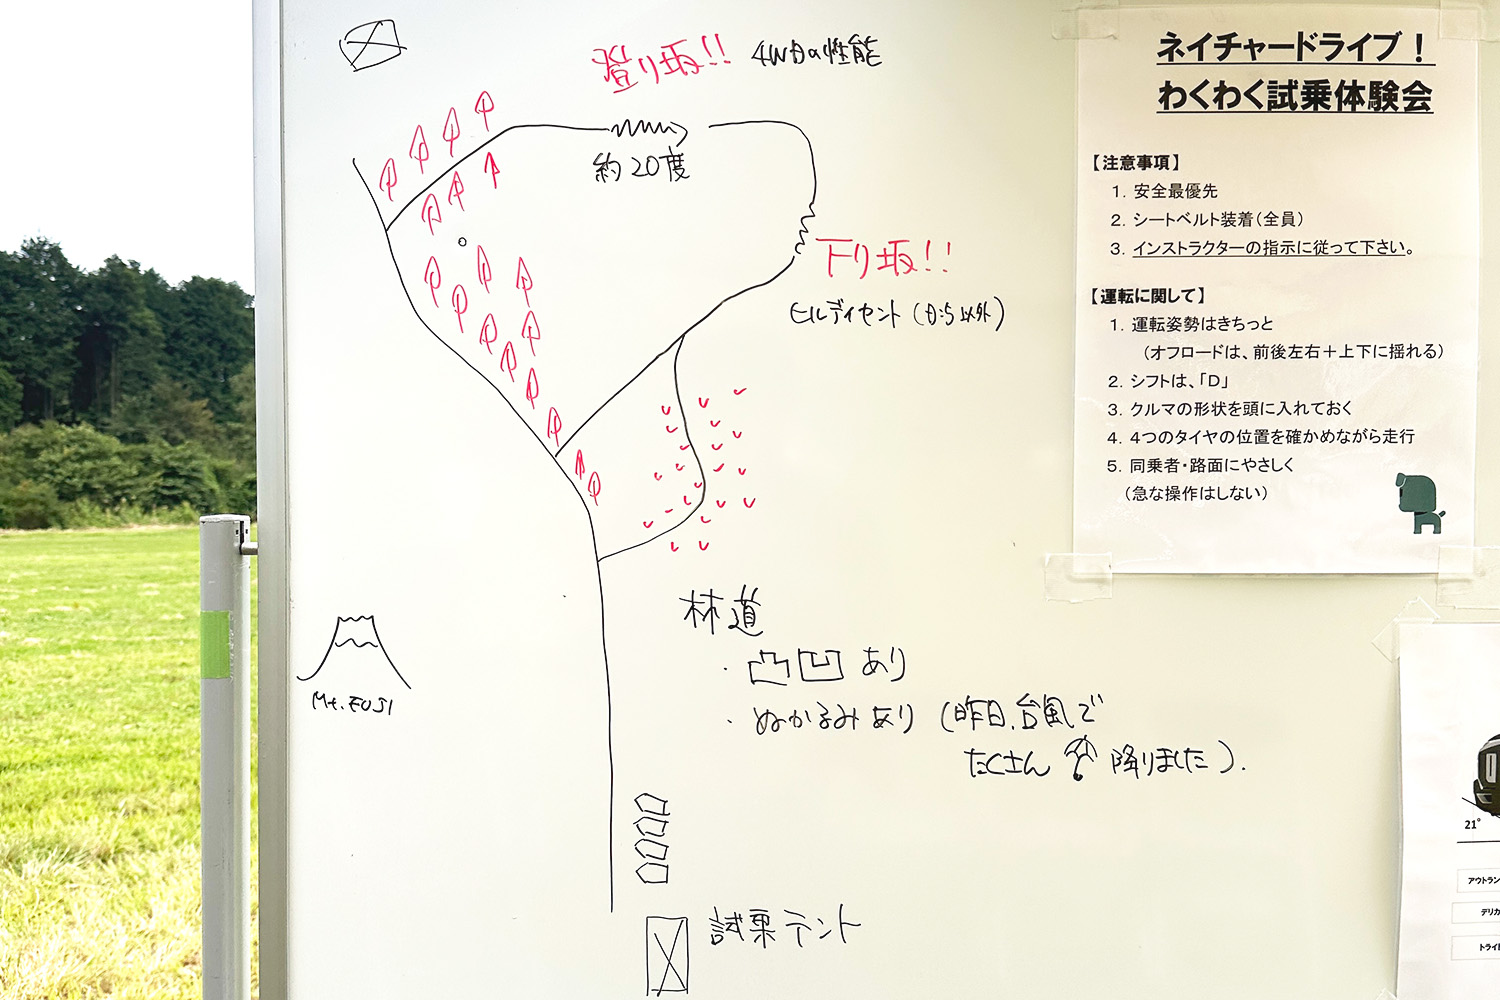 登り坂!! 4WDの性能
約20度
下り坂!!
ヒルディセント(から以外)
林道
・凸凹あり
・ぬかるみあり(昨日、台風で
たくさん 降りました).
Mt. FUJI
試乗テント
ネイチャードライブ！
わくわく試乗体験会
【注意事項】
1．安全最優先
2．シートベルト装着（全員）
3．インストラクターの指示に従って下さい。
【運転に関して】
1．運転姿勢はきちっと
（オフロードは、前後左右＋上下に揺れる）
2．シフトは、「D」
3．クルマの形状を頭に入れておく
4．4つのタイヤの位置を確かめながら走行
5．同乗者・路面にやさしく
（急な操作はしない）
21°
アウトラン
デリカ
トライ